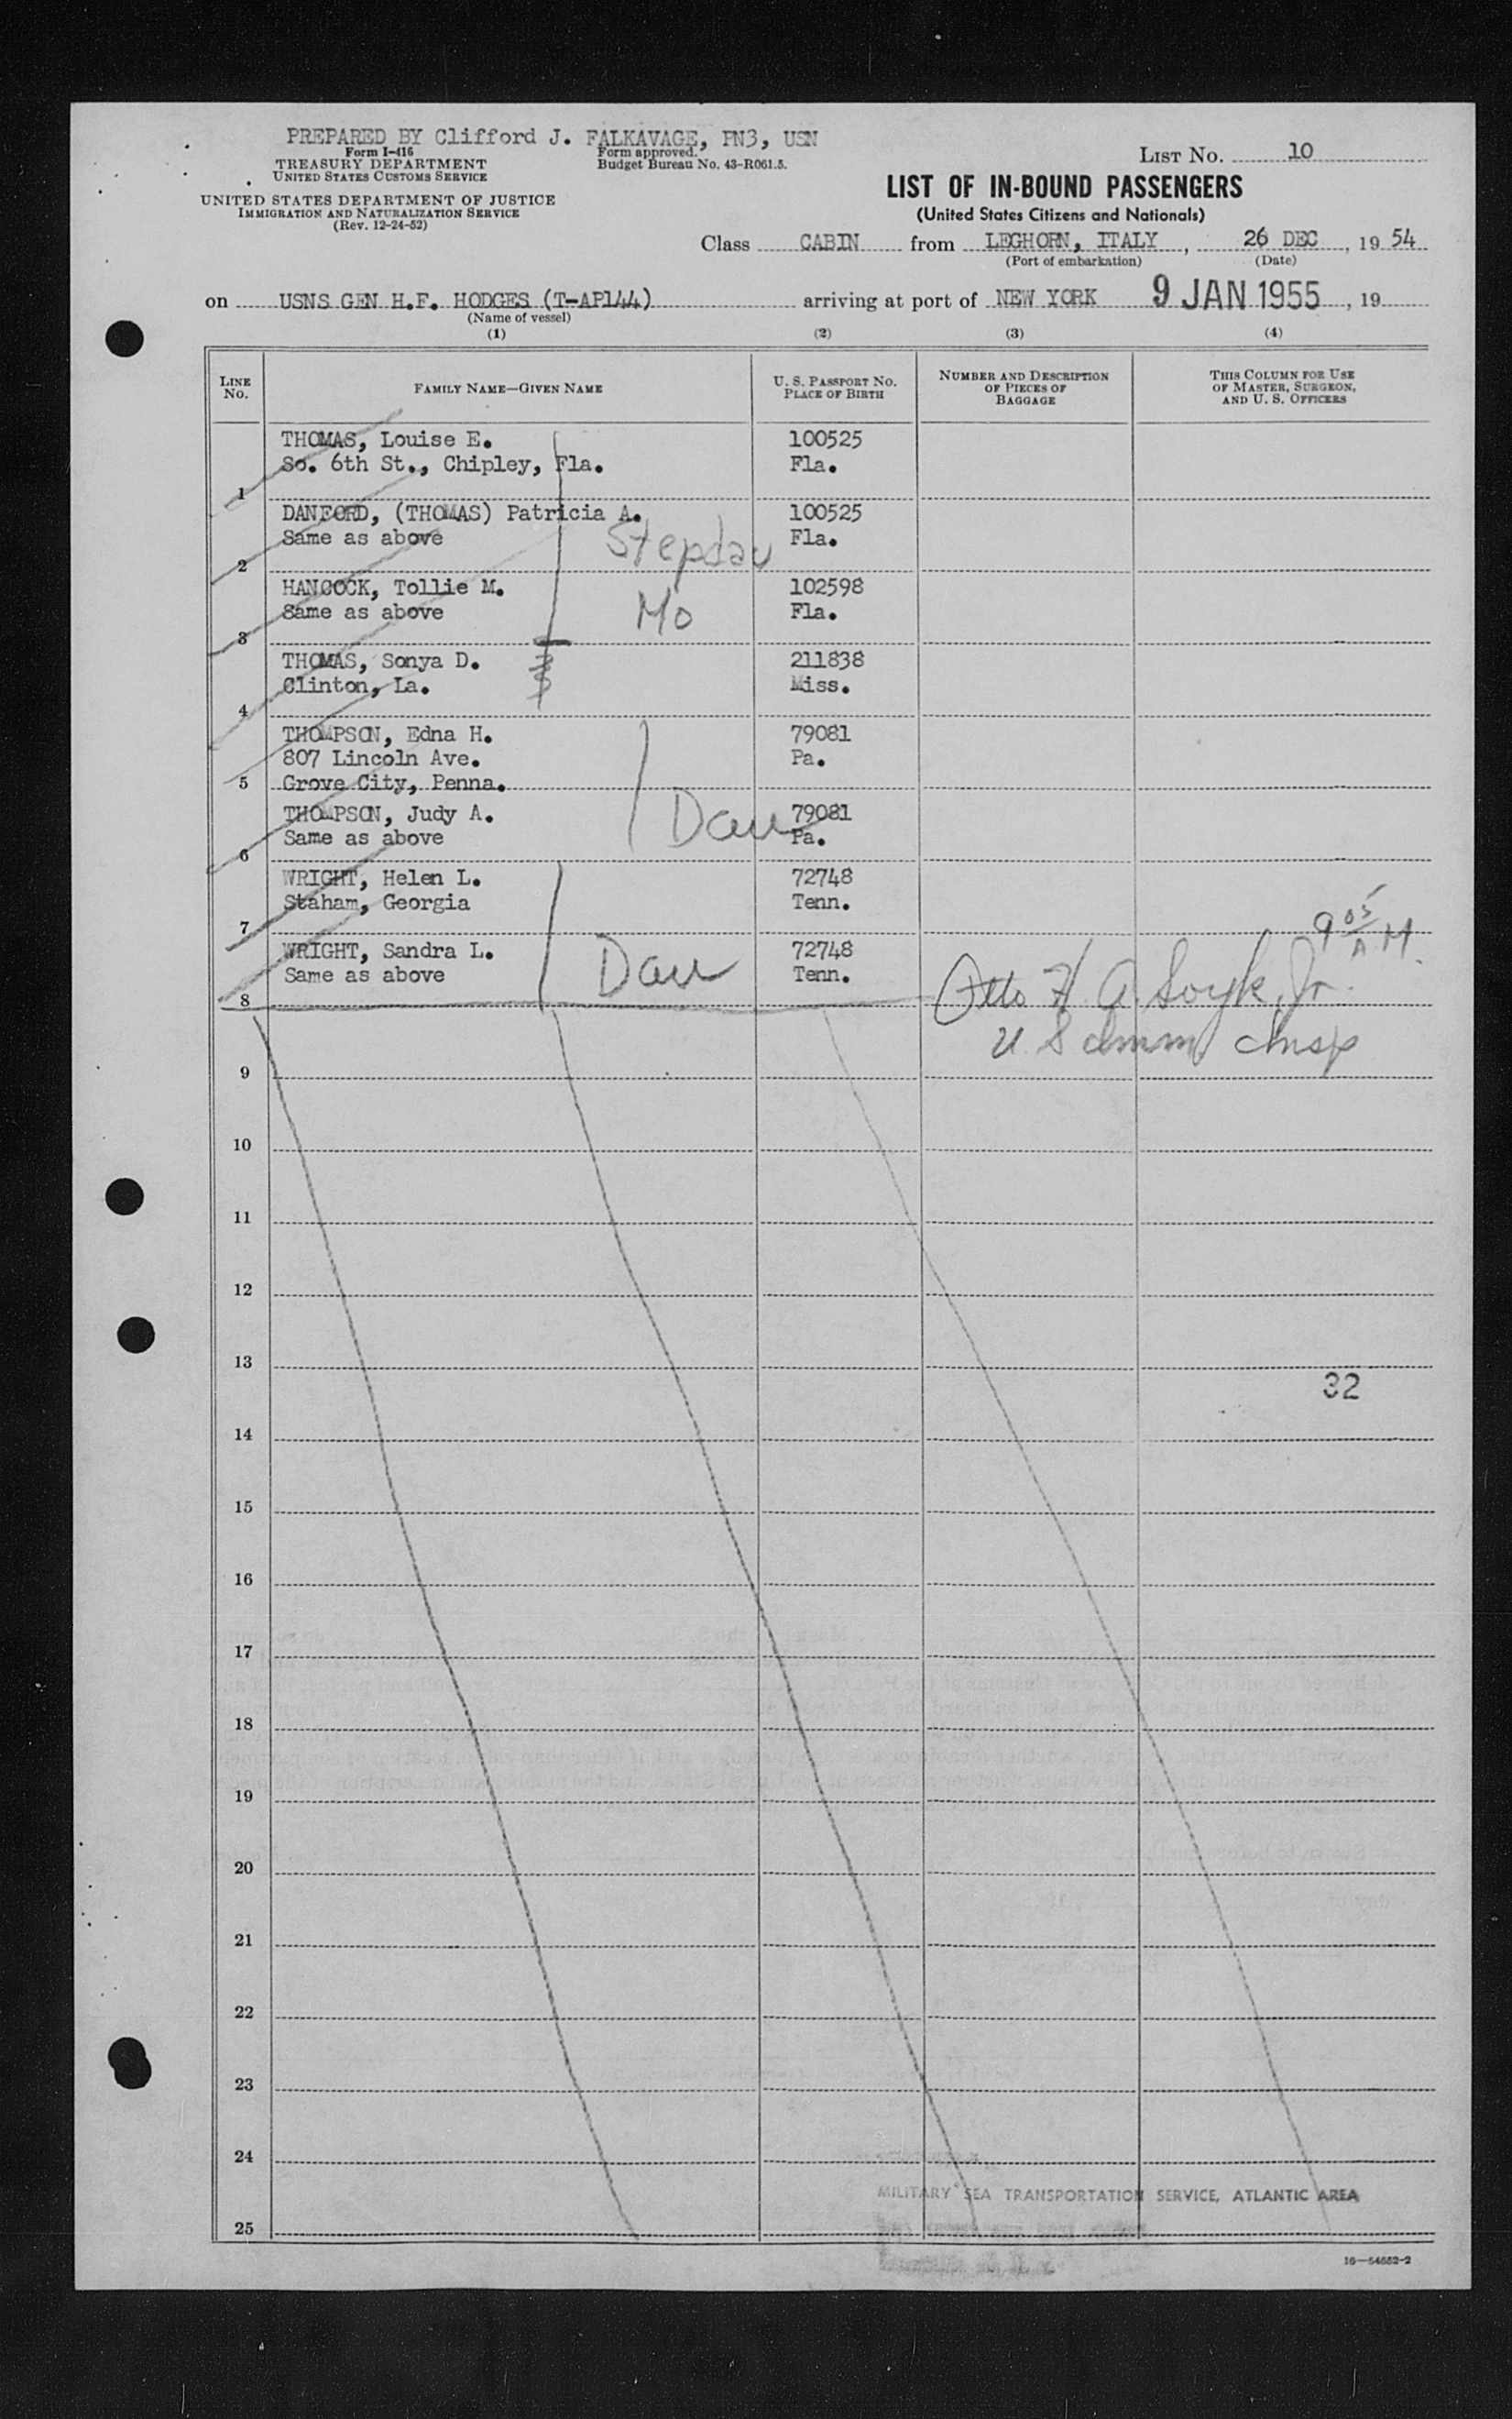 PREPARED BY Clifford J. FALKAVAGE, PN3, USN
Form I-416
TREASURY DEPARTMENT
UNITED STATES CUSTOMS SERVICE
Form approved.
Budget Bureau No. 43-R061.5.
UNITED STATES DEPARTMENT OF JUSTICE
IMMIGRATION AND NATURALIZATION SERVICE
(Rev. 12-24-52)
LIST NO. 10
LIST OF IN-BOUND PASSENGERS
(United States Citizens and Nationals)
Class CABIN from LEGHORN, ITALY, 26 DEC, 19 54
(Port of embarkation) (Date)
on USNS GEN H.F. HODGES (T-AP144) arriving at port of NEW YORK 9 JAN 1955, 19
(Name of vessel)
(1) (2) (3) (4)
LINE NO. FAMILY NAME—GIVEN NAME U. S. PASSPORT NO. PLACE OF BIRTH NUMBER AND DESCRIPTION OF PIECES OF BAGGAGE THIS COLUMN FOR USE OF MASTER, SURGEON, AND U. S. OFFICERS
THOMAS, Louise E. 100525
So. 6th St., Chipley, Fla. Fla.
1
DANFORD, (THOMAS) Patricia A. 100525
Same as above Stepdau Fla.
2
HANCOCK, Tollie M. 102598
Same as above Mo Fla.
3
THOMAS, Sonya D. 211838
Clinton, La. Miss.
4
THOMPSON, Edna H. 79081
807 Lincoln Ave. Pa.
5 Grove City, Penna.
THOMPSON, Judy A. 79081
Same as above Dau Pa.
6
WRIGHT, Helen L. 72748
Staham, Georgia Tenn.
7 9 05 AM.
WRIGHT, Sandra L. 72748
Same as above Dau Tenn.
Otto H A Soyk, Jr.
8
U S Imm Insp
9
10
11
12
13
32
14
15
16
17
18
19
20
21
22
23
24
MILITARY SEA TRANSPORTATION SERVICE, ATLANTIC AREA
25
16—54652-2